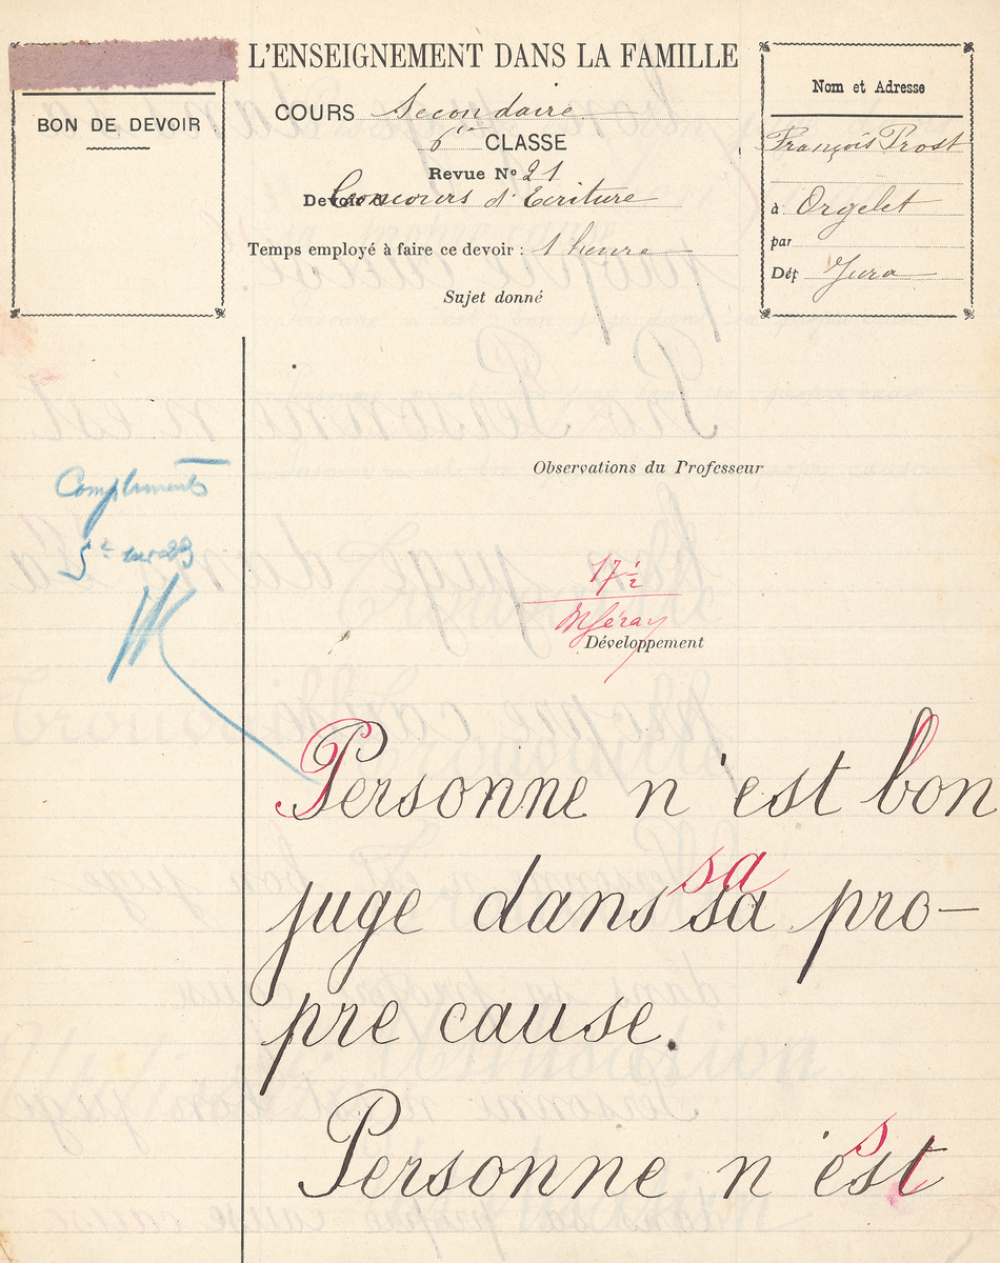 L'ENSEIGNEMENT DANS LA FAMILLE
BON DE DEVOIR
COURS Secondaire
6e CLASSE
Revue Nº 21
Devoir Concours d'Ecriture
Temps employé à faire ce devoir : 1 heure
Sujet donné
Nom et Adresse
François Prost
à Orgelet
par
Dép Jura
Compliments
Observations du Professeur
17 1/2
Développement
Personne n'est bon
sa
juge dans sa pro-
pre cause.
s
Personne n'est